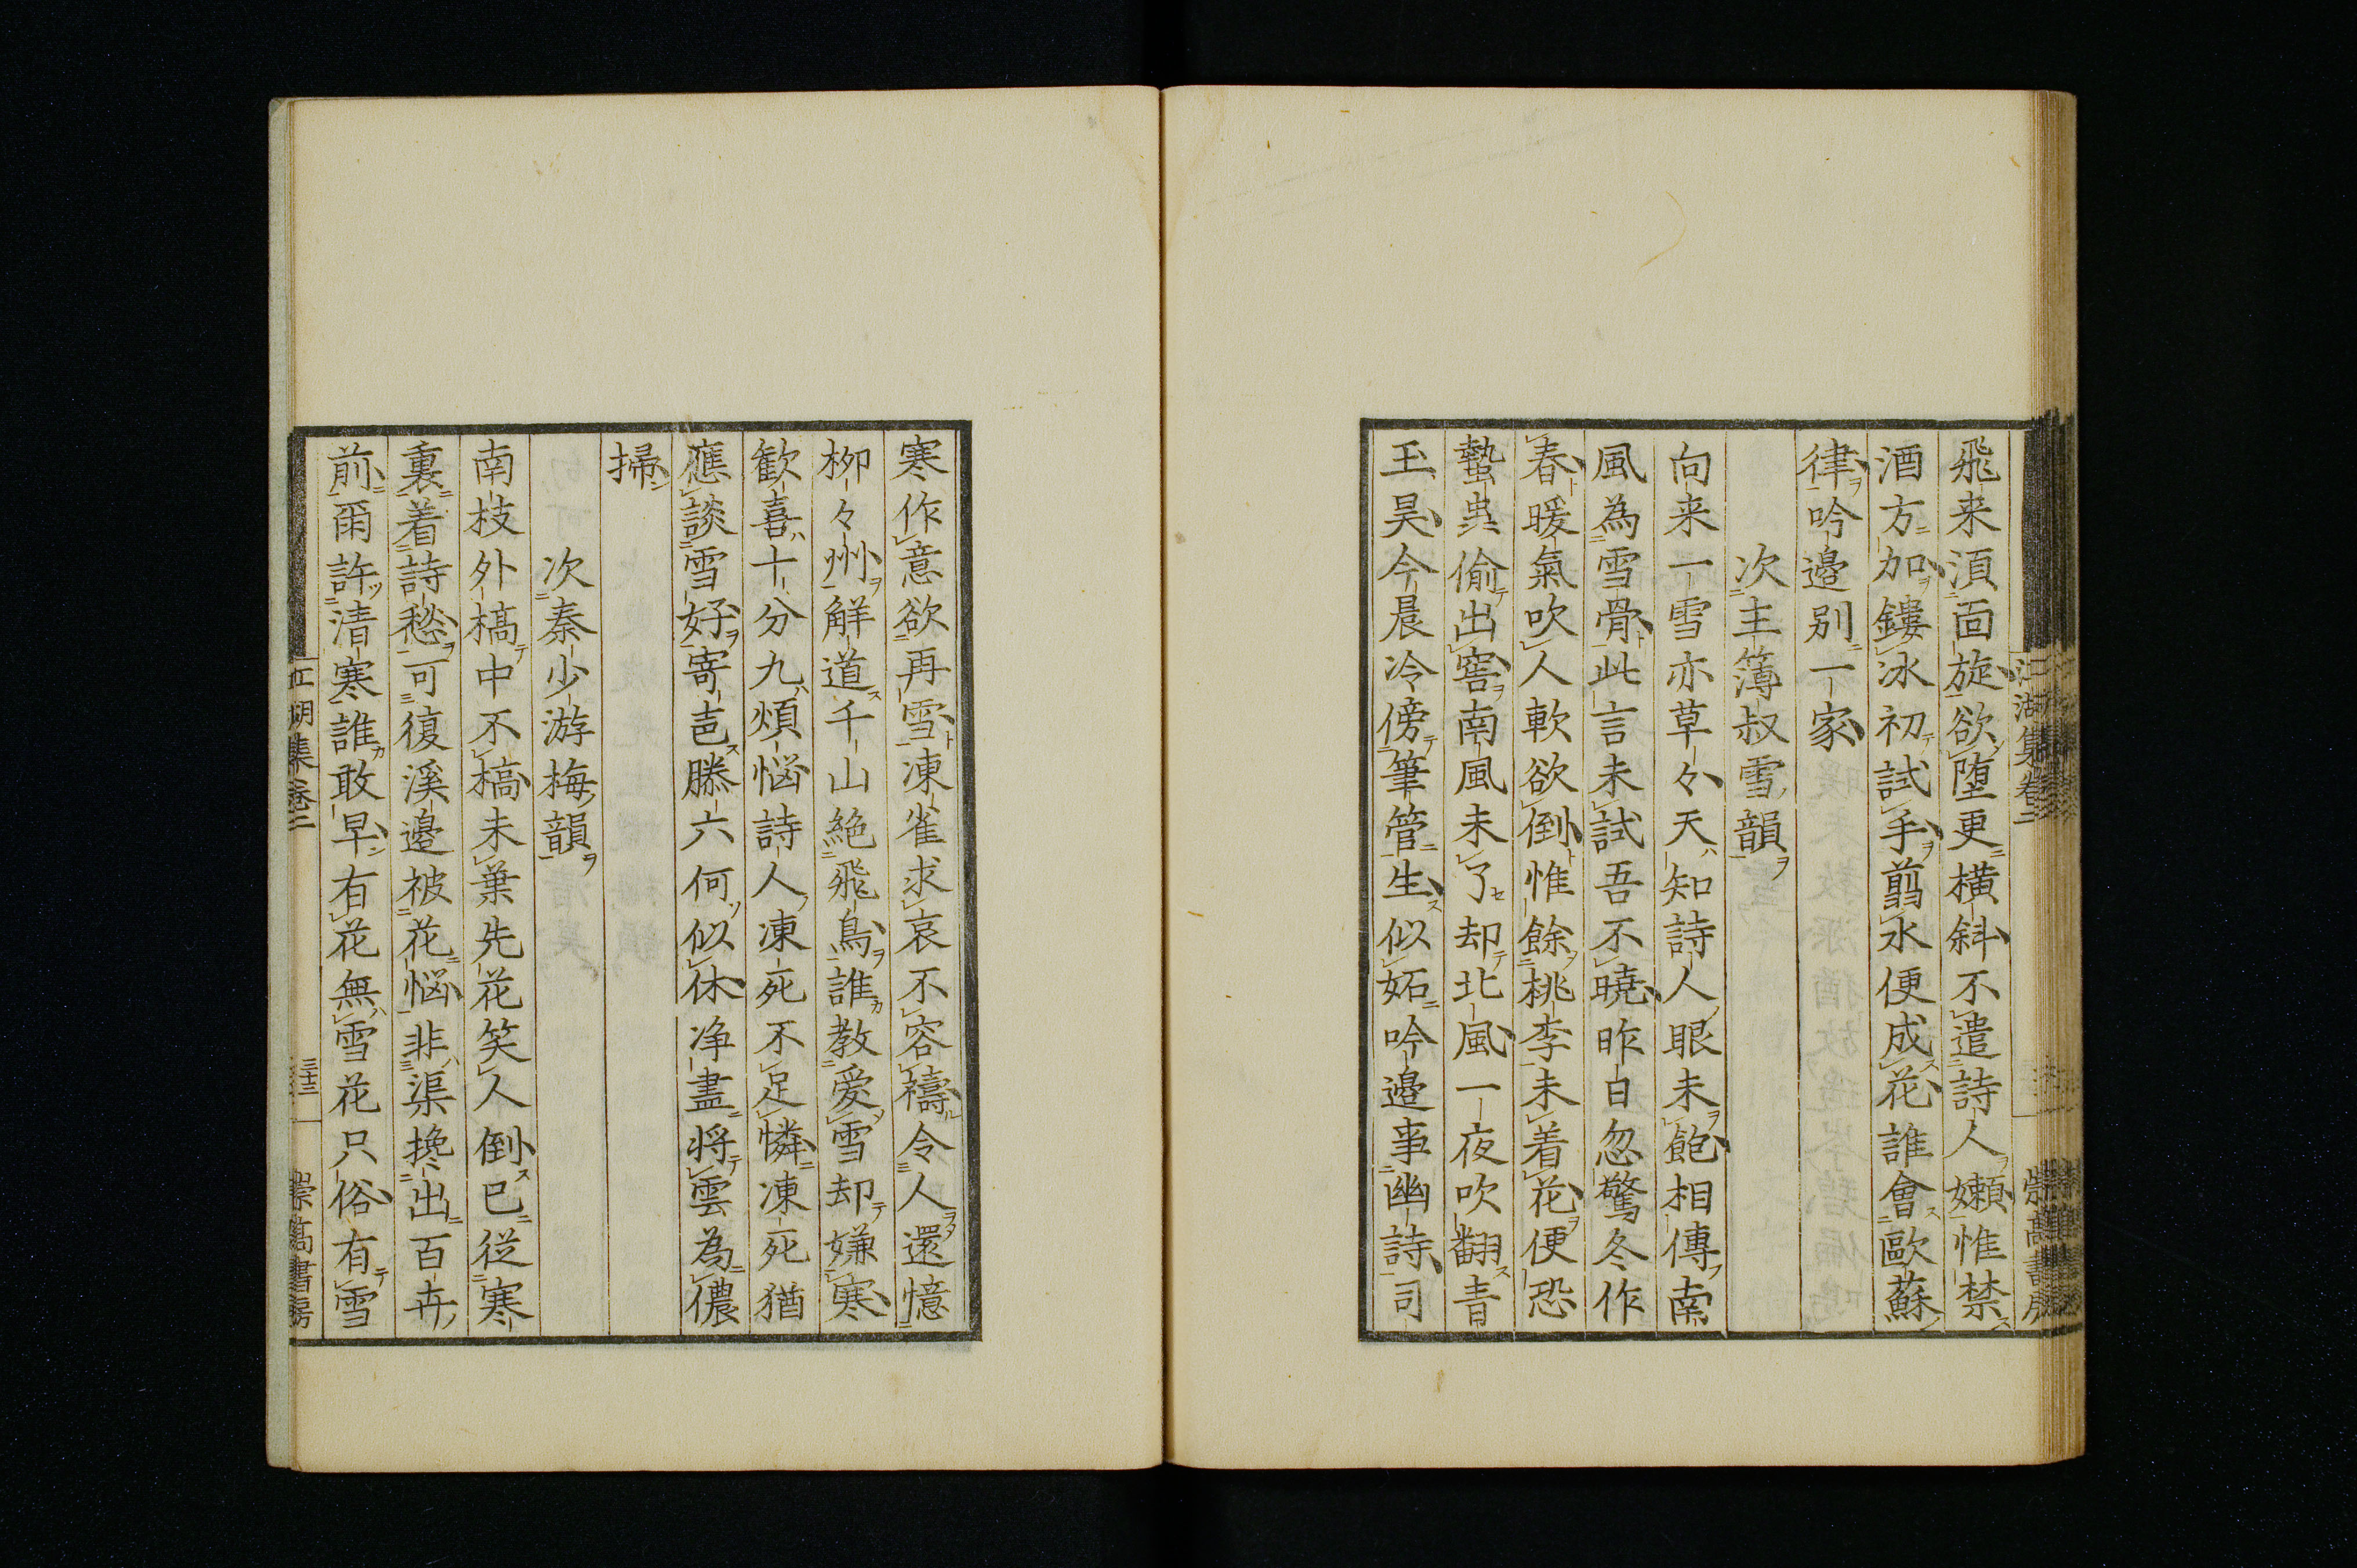 飛来湏面旋欲堕更横斜不遣詩人嬾惟禁
酒方加鏤冰初試手翦水便成花誰會歐蘇
律吟邉别一家
次主簿叔雪韻
向来一雪亦草々天知詩人眼未飽相傳南
風為雪骨此言未試吾不曉昨日忽驚冬作
春暖氣吹人軟欲倒惟餘桃李未着花便恐
蟄蟲偷出窖南風未了却北風一夜吹翻青
玉昊今晨冷傍筆管生似妬吟邉事幽詩司
江湖集卷二
崇髙書房
寒作意欲再雪凍雀求哀不容禱令人還憶
栁々州解道千山絶飛鳥誰教愛雪却嫌寒
歓喜十分九煩悩詩人凍死不足憐凍死猶
應談雪好寄声滕六何似休浄盡将雲為儂
掃
次秦少游梅韻
南枝外槁中不槁未葉先花笑人倒已従寒
裏着詩愁可復溪邉被花悩非渠搀出百卉
前爾許清寒誰敢早有花無雪花只俗有雪
江湖集卷二
三十三
崇髙書房